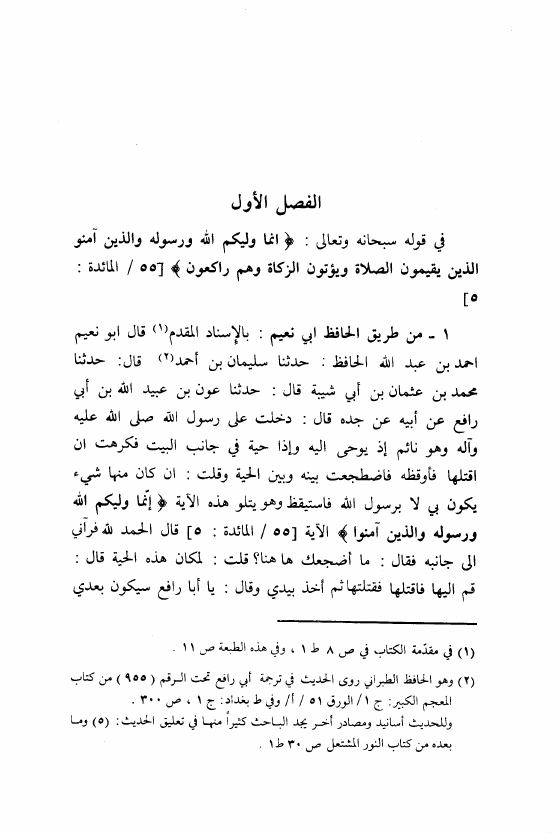 الفصل الأول
في قوله سبحانه وتعالى : ﴿ انما وليكم الله ورسوله والذين آمنو
الذين يقيمون الصلاة ويؤتون الزكاة وهم راكعون ﴾ [٥٥ / المائدة :
٥]
١ - من طريق الحافظ ابي نعيم : بالإسناد المقدم(١) قال ابو نعيم
احمد بن عبد الله الحافظ : حدثنا سليمان بن أحمد(٢) قال: حدثنا
محمد بن عثمان بن أبي شيبة قال : حدثنا عون بن عبيد الله بن أبي
رافع عن أبيه عن جده قال : دخلت على رسول الله صلى الله عليه
وآله وهو نائم إذ يوحى اليه وإذا حية في جانب البيت فكرهت ان
اقتلها فأوقظه فاضطجعت بينه وبين الحية وقلت : ان كان منها شيء
يكون بي لا برسول الله فاستيقظ وهو يتلو هذه الآية ﴿ إنّما وليكم الله
ورسوله والذين آمنوا ﴾ الآية [٥٥ / المائدة : ٥] قال الحمد لله فرآني
الى جانبه فقال : ما أضجعك ها هنا؟ قلت : لمكان هذه الحية قال :
قم اليها فاقتلها فقتلتها ثم أخذ بيدي وقال : يا أبا رافع سيكون بعدي
(١) في مقدّمة الكتاب في ص ٨ ط ١ ، وفي هذه الطبعة ص ١١ .
(٢) وهو الحافظ الطبراني روى الحديث في ترجمة أبي رافع تحت الرقم (٩٥٥) من كتاب
المعجم الكبير: ج ١/ الورق ٥١ / أ/ وفي ط بغداد: ج ١ ، ص ٣٠٠ .
وللحديث أسانيد ومصادر أخر يجد الباحث كثيراً منها في تعليق الحديث: (٥) وما
بعده من كتاب النور المشتعل ص ٣٠ ط١ .